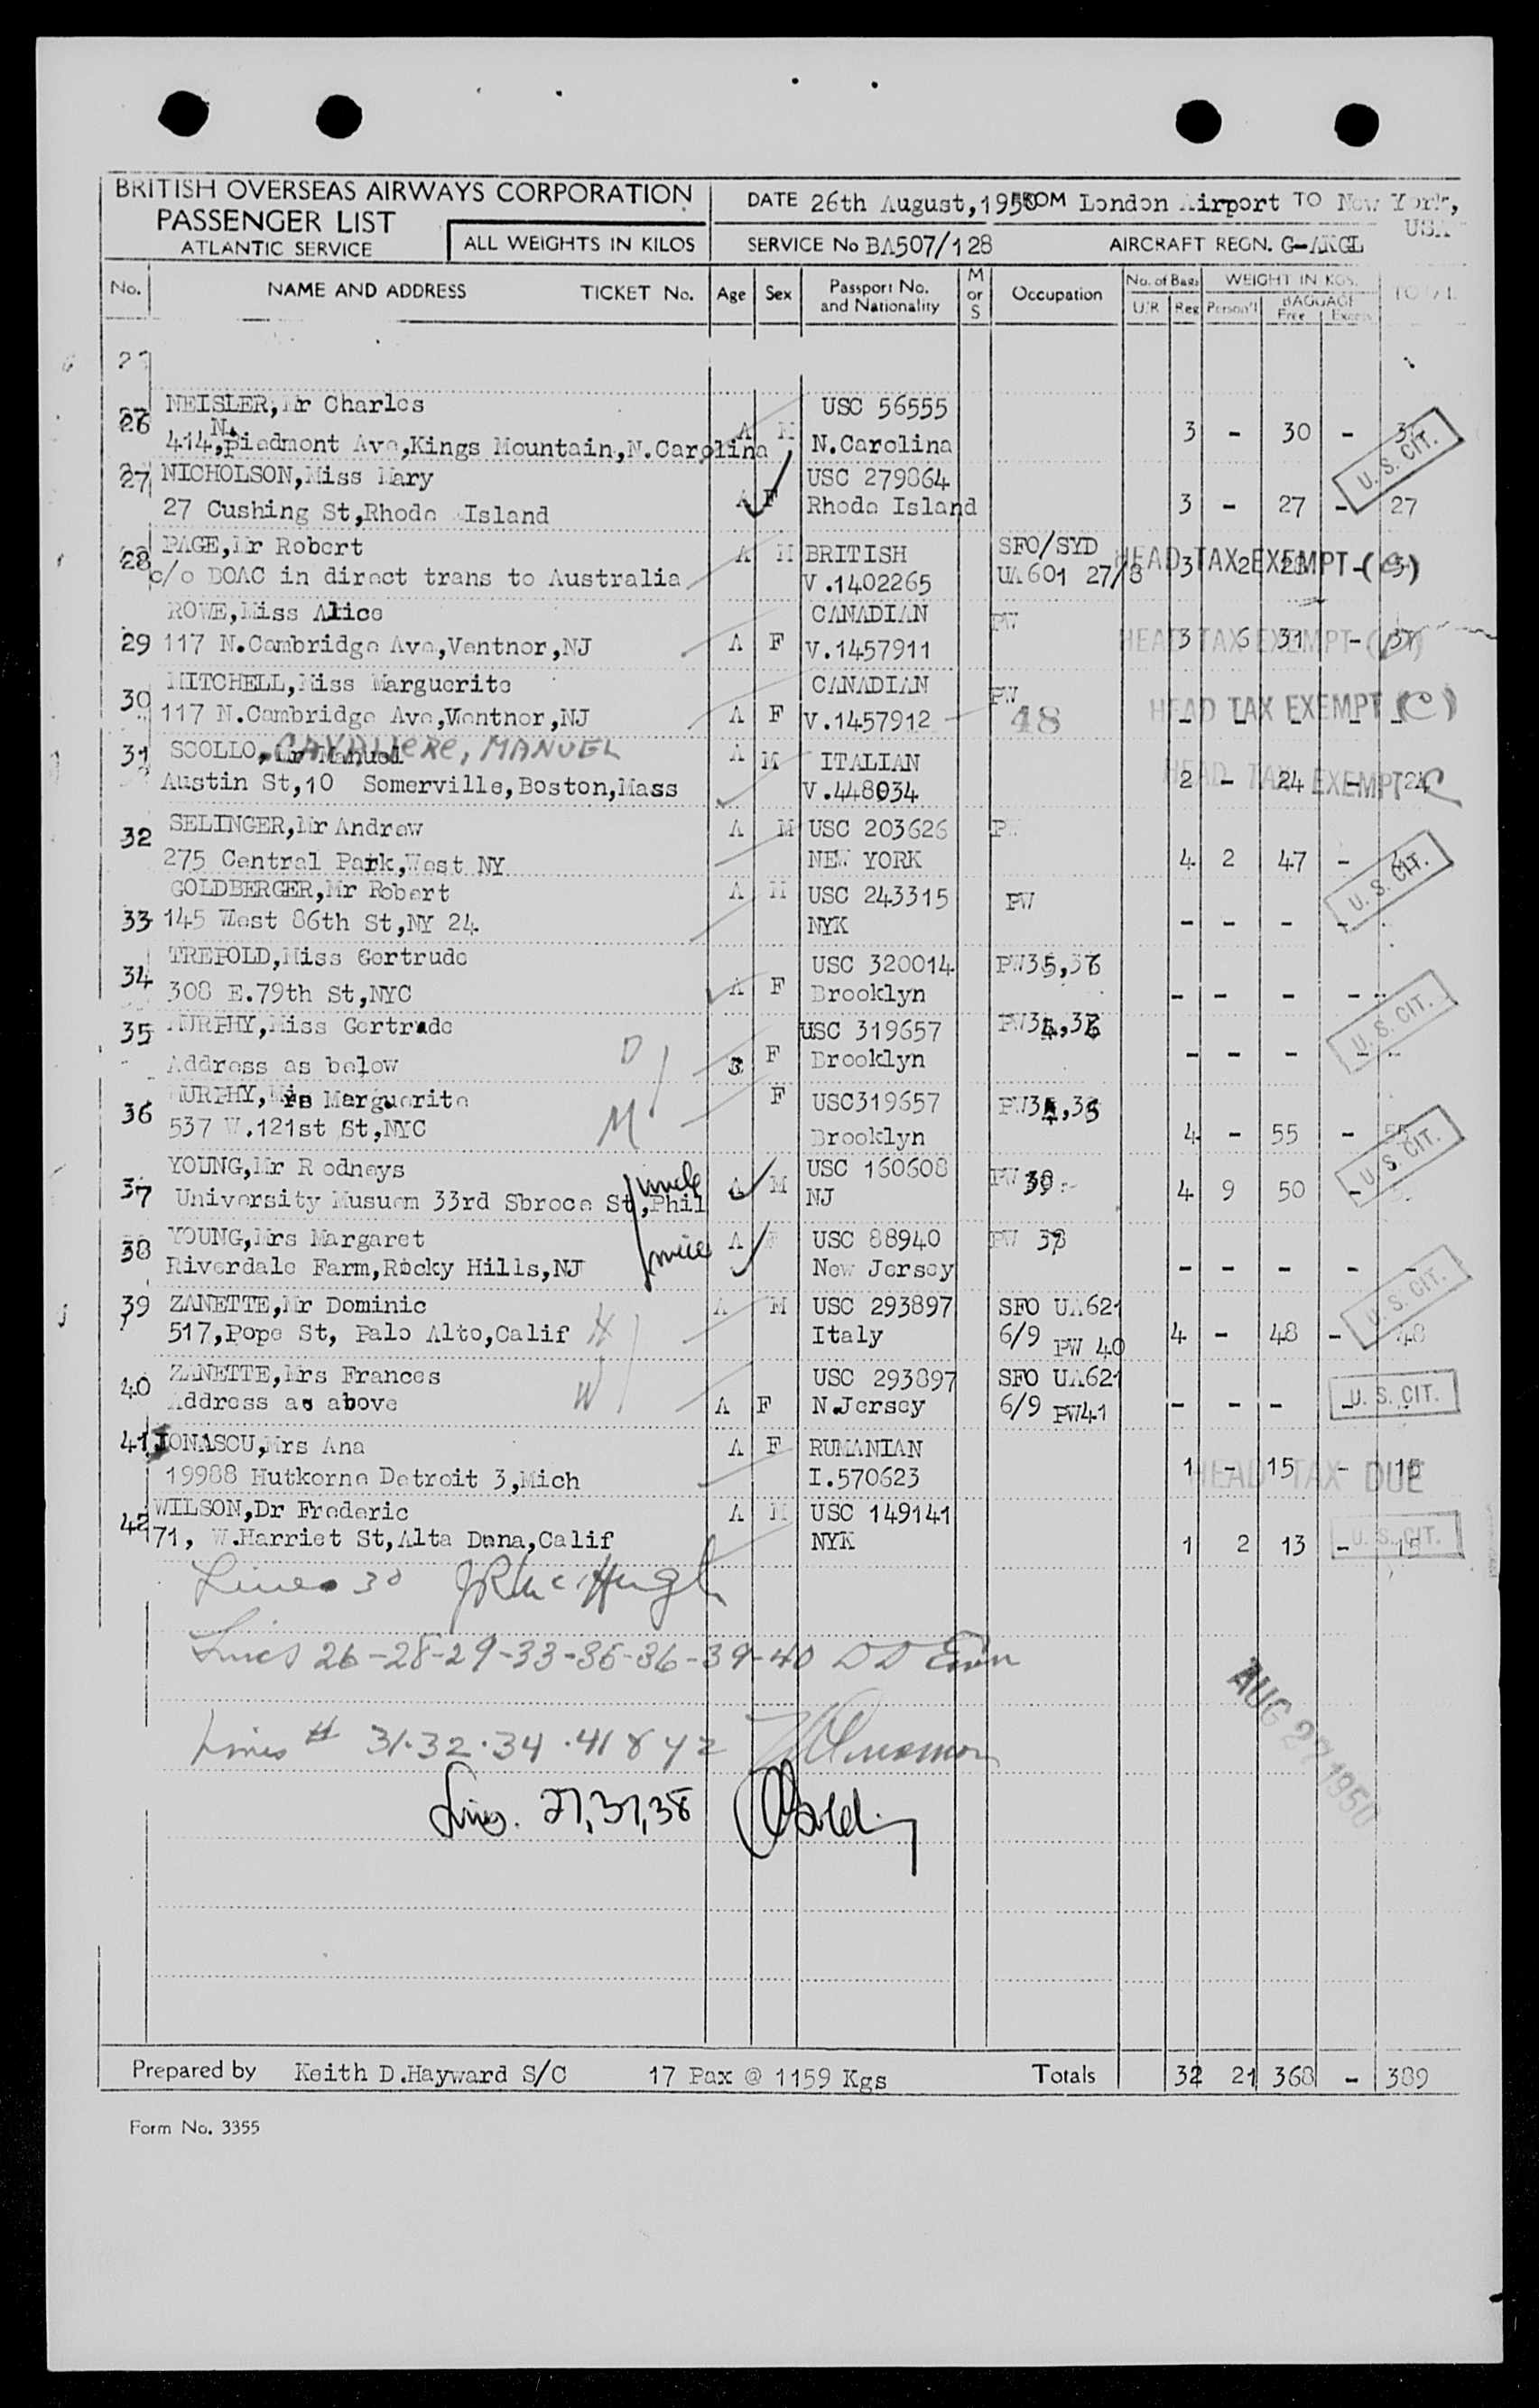 BRITISH OVERSEAS AIRWAYS CORPORATION
PASSENGER LIST
ATLANTIC SERVICE
ALL WEIGHTS IN KILOS
DATE 26th August,1950 FROM London Airport TO New York, USA
SERVICE No BA507/128 AIRCRAFT REGN. G-AKGL
No. NAME AND ADDRESS TICKET No. Age Sex Passport No. and Nationality M or S Occupation No. of Bags U/R Reg WEIGHT IN KGS. Person'l BAGGAGE Free Excess TOTAL
26 NEISLER,Mr Charles A M USC 56555 3 - 30 -
414,N.Piedmont Ave,Kings Mountain,N.Carolina N.Carolina U. S. CIT.
27 NICHOLSON,Miss Mary A F USC 279864 3 - 27 - 27
27 Cushing St,Rhode Island Rhode Island
28 PAGE,Mr Robert A M BRITISH SFO/SYD 3 2 HEAD TAX EXEMPT (C)
c/o BOAC in direct trans to Australia V.1402265 UA601 27/8
ROWE,Miss Alice CANADIAN PW
29 117 N.Cambridge Ave,Ventnor,NJ A F V.1457911 3 6 31 - 37 HEAD TAX EXEMPT
30 MITCHELL,Miss Marguerite CANADIAN PW
117 N.Cambridge Ave,Ventnor,NJ A F V.1457912 48 HEAD TAX EXEMPT (C)
31 SCOLLO,Mr Manuel CAVALIERE, MANUEL A M ITALIAN
Austin St,10 Somerville,Boston,Mass V.448034 2 - 24 - 24 HEAD TAX EXEMPT C
32 SELINGER,Mr Andrew A M USC 203626 PW
275 Central Park,West NY NEW YORK 4 2 47 - U. S. CIT.
GOLDBERGER,Mr Robert A M USC 243315 PW
33 145 West 86th St,NY 24. NYK - - - -
34 TREPOLD,Miss Gertrude USC 320014 PW35,36
308 E.79th St,NYC A F Brooklyn - - - - U. S. CIT.
35 MURPHY,Miss Gertrude D USC 319657 PW34,36
Address as below 3 F Brooklyn - - - -
36 MURPHY,Mrs Marguerite F USC319657 PW34,35
537 W.121st St,NYC M Brooklyn 4 - 55 - 55 U. S. CIT.
YOUNG,Mr Rodneys uncle USC 160608 PW 38
37 University Musuem 33rd Sbroce St,Phil A M NJ 4 9 50 -
38 YOUNG,Mrs Margaret niece A F USC 88940 PW 37
Riverdale Farm,Rocky Hills,NJ New Jersey - - - -
39 ZANETTE,Mr Dominic H A M USC 293897 SFO UA621
517,Pope St, Palo Alto,Calif Italy 6/9 PW 40 4 - 48 - 48 U. S. CIT.
40 ZANETTE,Mrs Frances W USC 293897 SFO UA621
Address as above A F N.Jersey 6/9 PW41 - - - - U. S. CIT.
41 IONASCU,Mrs Ana A F RUMANIAN
19988 Hutkorne Detroit 3,Mich I.570623 1 - 15 - 15 HEAD TAX DUE
42 WILSON,Dr Frederic A M USC 149141
71, W.Harriet St,Alta Dena,Calif NYK 1 2 13 - 15 U. S. CIT.
Lines 30 J R McHugh
Lines 26-28-29-33-35-36-39-40
Lines # 31.32.34.41 & 42
Lines. 27,37,38
AUG 27 1950
Prepared by Keith D.Hayward S/C 17 Pax @ 1159 Kgs Totals 32 21 368 - 389
Form No. 3355